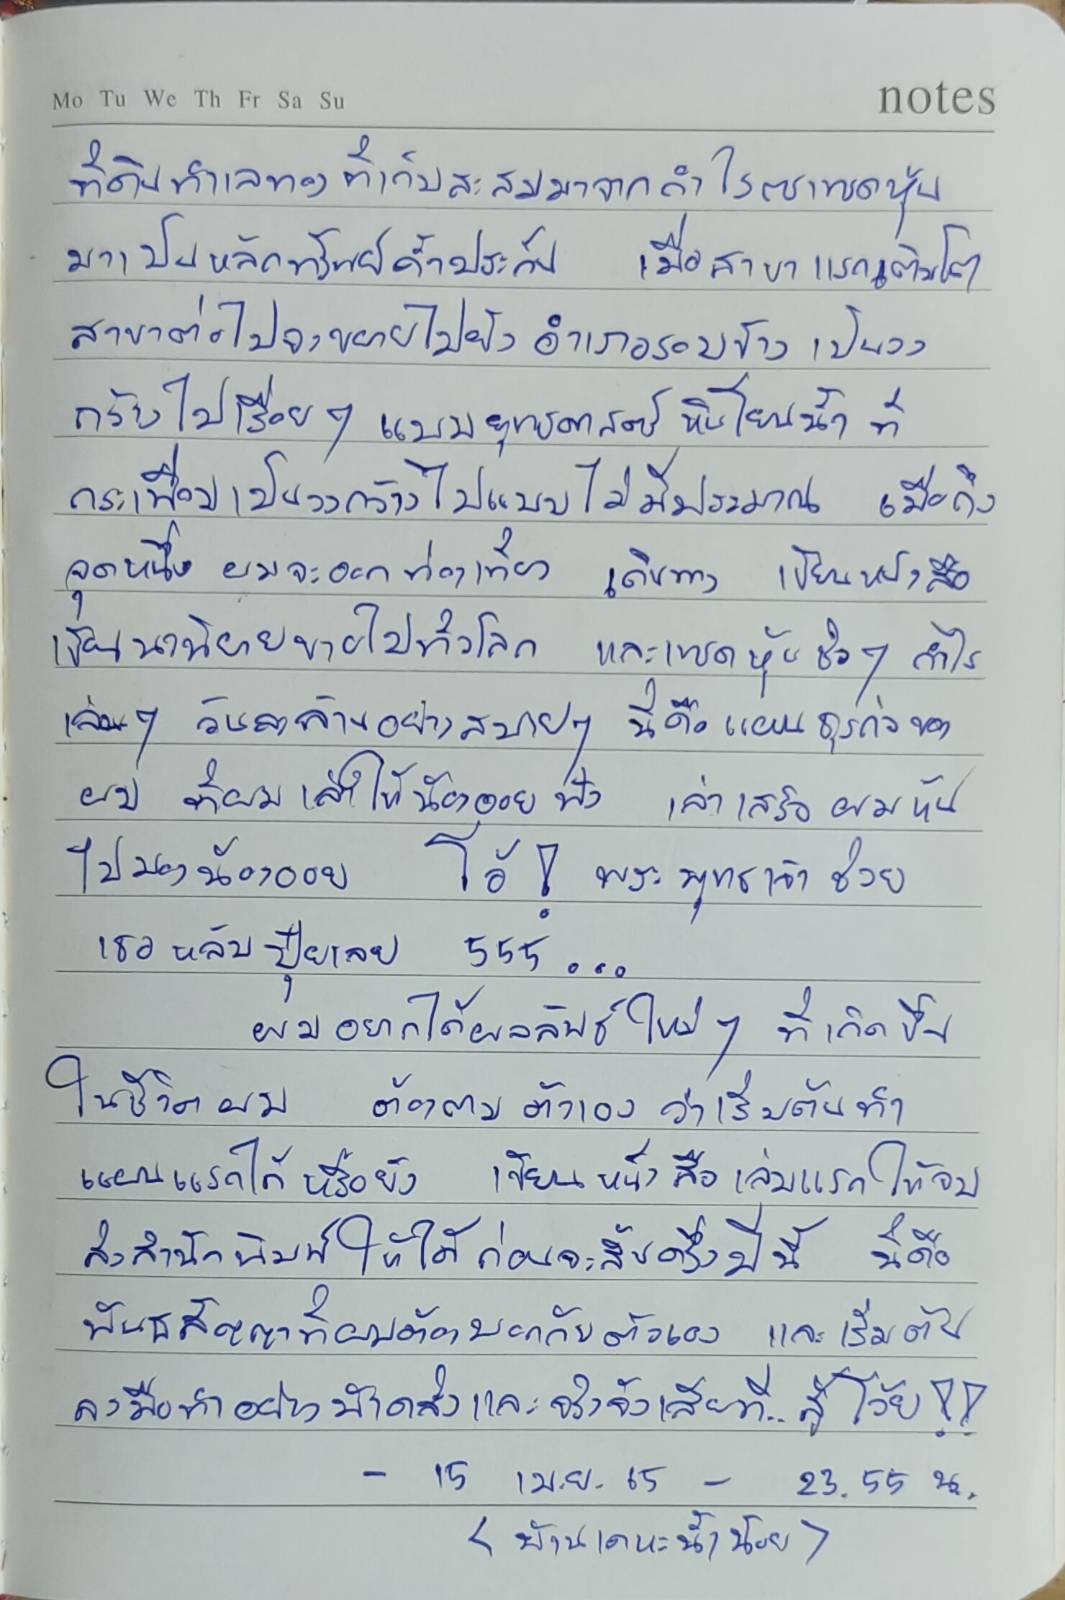 Mo Tu We Th Fr Sa Su notes
ที่ดินทำเลทอง ที่เก็บสะสมมาจากกำไรการเทรดหุ้น
มาเป็นหลักทรัพย์ค้ำประกัน เมื่อสาขาแรกเติบโต
สาขาต่อไปจะขยายไปยัง อำเภอรอบข้าง เป็นวง
กว้างไปเรื่อย ๆ แบบยุทธศาสตร์ หินโยนน้ำ ที่
กระเพื่อมเป็นวงกว้างไปแบบไม่มีประมาณ เมื่อถึง
จุดหนึ่ง ผมจะออกท่องเที่ยว เดินทาง เขียนหนังสือ
เขียนนวนิยายขายไปทั่วโลก และเทรดหุ้นชิว ๆ กำไร
เล่นๆ วันละล้านอย่างสบายๆ นี่คือแผนธุรกิจของ
ผม ที่ผมเล่าให้น้องออยฟัง เล่าเสร็จ ผมหัน
ไปมองน้องออย โอ้! พระพุทธเจ้าช่วย
เธอหลับปุ๋ยเลย 555...
ผมอยากได้ผลลัพธ์ใหม่ ๆ ที่เกิดขึ้น
ในชีวิตผม ต้องถามตัวเอง ว่าเริ่มต้นทำ
แผนแรกได้หรือยัง เขียนหนังสือเล่มแรกให้จบ
ส่งสำนักพิมพ์ให้ได้ก่อนจะสิ้นครึ่งปีนี้ นี่คือ
พันธสัญญาที่ผมต้องบอกกับตัวเอง และเริ่มต้น
ลงมือทำอย่างบ้าคลั่งและจริงจังเสียที.. สู้โว้ย!!
- 15 เม.ย. 65 - 23.55 น.
<บ้านเคหะน้ำน้อย>